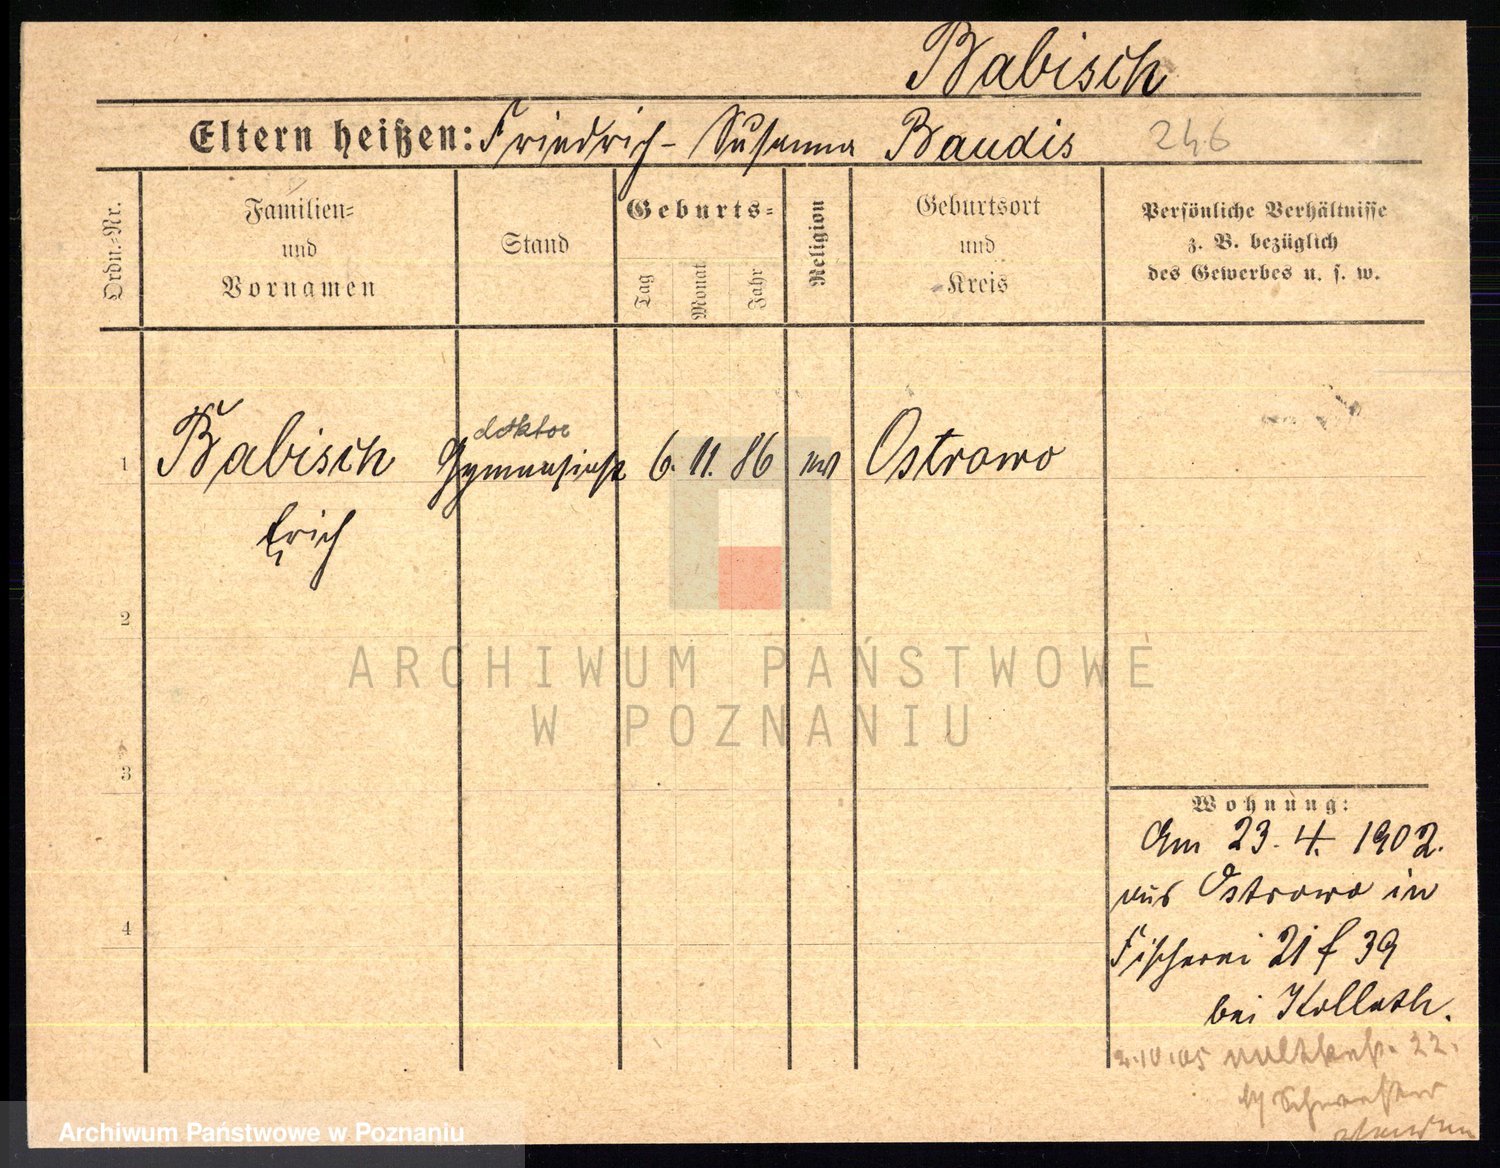 Babisch
Eltern heißen: Friedrich - Susanna Baudis 246
Ordn.-Nr.
Familien-
und
Vornamen
Stand
Geburts-
Tag
Monat
Jahr
Religion
Geburtsort
und
Kreis
Persönliche Verhältnisse
z. B. bezüglich
des Gewerbes u. s. w.
doktor
1 Babisch Gymnasiast 6. 11. 86 ev Ostrowo
Erich
2
ARCHIWUM PAŃSTWOWE
W POZNANIU
3
Wohnung:
Am 23. 4. 1902.
aus Ostrowo in
4
Fischerei 21 f 39
bei Kollath.
2.10.05 22.
Archiwum Państwowe w Poznaniu